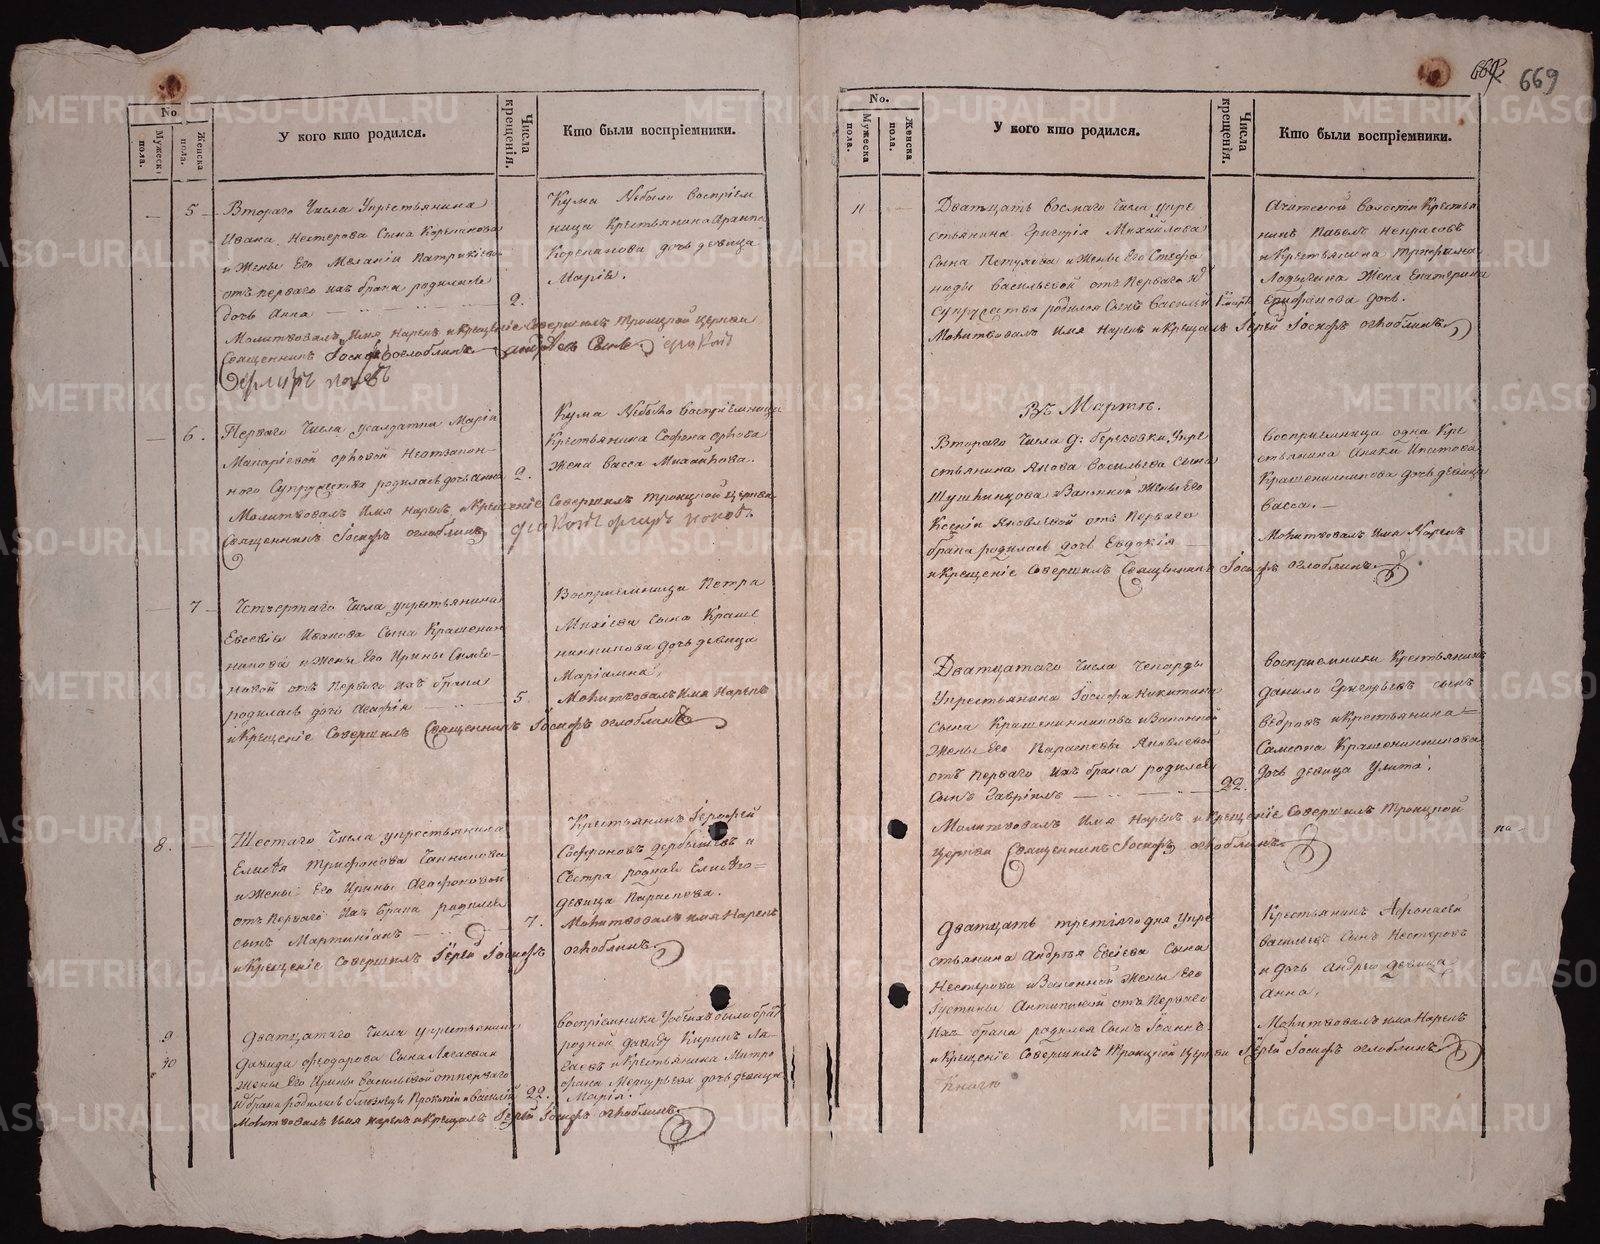 669
No.
Мужеска пола.
Женска пола.
У кого кто родился.
Числа крещенія.
Кто были воспріемники.
5
Втораго Числа Укрестьянина
Ивана Нестерова Сына
и Жены Его Меланіи
отъ перваго ихъ брака родилась
дочь Анна
2.
Кума Небыло воспріем
ница Крестьянина
дочь девица
Марія.
Молитвовалъ Имя Нарекъ и Крещеніе Совершилъ Троицкой Церкви
Священникъ Іосифъ Оглоблинъ
6.
Перваго Числа усолдатки Маріи
Макаріевой Орловой Незакон-
наго Супружества родилась дочь Анна
2.
Кума Небыло воспріемница
Крестьянина Софона Орлова
Жена Васса Михайлова.
Молитвовалъ Имя Нарекъ и Крещеніе Совершилъ Троицкой Церкви
Священникъ Іосифъ Оглоблинъ
7
Четвертаго Числа укрестьянина
Евсевія Иванова Сына Крашенин
никова и Жены Его Ирины Симео-
новой отъ Перваго ихъ брака
родилась дочь Агафія
5
Воспріемница Петра
Сына Краше
нинникова дочь девица
Маріамна.
Молитвовалъ Имя Нарекъ
и Крещеніе Совершилъ Священникъ Іосифъ Оглоблинъ
8.
Шестаго Числа укрестьянина
Елисея Трифонова
и Жены Его Ирины Агафоновой
отъ Перваго Ихъ брака родился
сынъ Мартиніанъ
7.
Крестьянинъ Іерофей
Софроновъ Дербышевъ и
Сестра родная Елисея
девица Параскева.
Молитвовалъ имя Нарекъ
и Крещеніе Совершилъ Іерей Іосифъ Оглоблинъ
9
10
Дватцатаго Числа укрестьянина
Давида Феодорова Сына
Жены Его Ирины Васильевой отъ перваго
брака родились близнецы Прокопій и Василій
22.
воспріемники Уобеихъ были братъ
родной Давиду Кирикъ
и Крестьянина Митро
фана Меркурьева дочь девица
Марія.
Молитвовалъ Имя Нарекъ и Крещалъ Іерей Іосифъ Оглоблинъ
No.
Мужеска пола.
Женска пола.
У кого кто родился.
Числа крещенія.
Кто были воспріемники.
11
Дватцать восмаго Числа укре
стьянина Григорія Михайлова
Сына Петухова и Жены Его Стефа
ниды Васильевой отъ Перваго
супружества родился Сынъ Василій
1 марта
Ачитской волости Крестья
нинъ Павелъ Некрасовъ
и Крестьянина Трифона
Ладыгина Жена Екатерина
Епифанова дочь.
Молитвовалъ Имя Нарекъ и Крещалъ Іерей Іосифъ Оглоблинъ
Въ Мартѣ.
Втораго Числа д: березовки Укре
стьянина Якова Васильева Сына
и Законной Жены Его
Ксеніи Яковлевой отъ Перваго
брака родилась дочь Евдокія
воспріемница одна Кре
стьянина Аники Ипатова
Крашенинникова дочь девица
Васса.
Молитвовалъ Имя Нарекъ
и Крещеніе Совершилъ Священникъ Іосифъ Оглоблинъ
Дватцатаго Числа
Укрестьянина Іосифа Никитина
сына Крашенинникова и Законной
Жены Его Параскевы Яковлевой
отъ Перваго ихъ брака родился
сынъ Гавріилъ
22.
воспріемники Крестьянинъ
Данило Григорьевъ сынъ
Ведровъ и Крестьянина
Самсона Крашенинникова
дочь девица Улита.
Молитвовалъ Имя Нарекъ и Крещеніе Совершилъ Троицкой
Церкви Священникъ Іосифъ Оглоблинъ
по
Дватцать третьяго дня Укре
стьянина Андрея Евсіева Сына
Нестерова и Законной Жены Его
Іустины Антиповой отъ Перваго
Ихъ брака родился Сынъ Іоаннъ
Крестьянинъ Афонасей
Васильевъ Сынъ Нестеровъ
и дочь Андрея девица
Анна.
Молитвовалъ имя Нарекъ
и Крещеніе Совершилъ Троицкой Церкви Іерей Іосифъ Оглоблинъ
METRIKI.GASO-URAL.RU